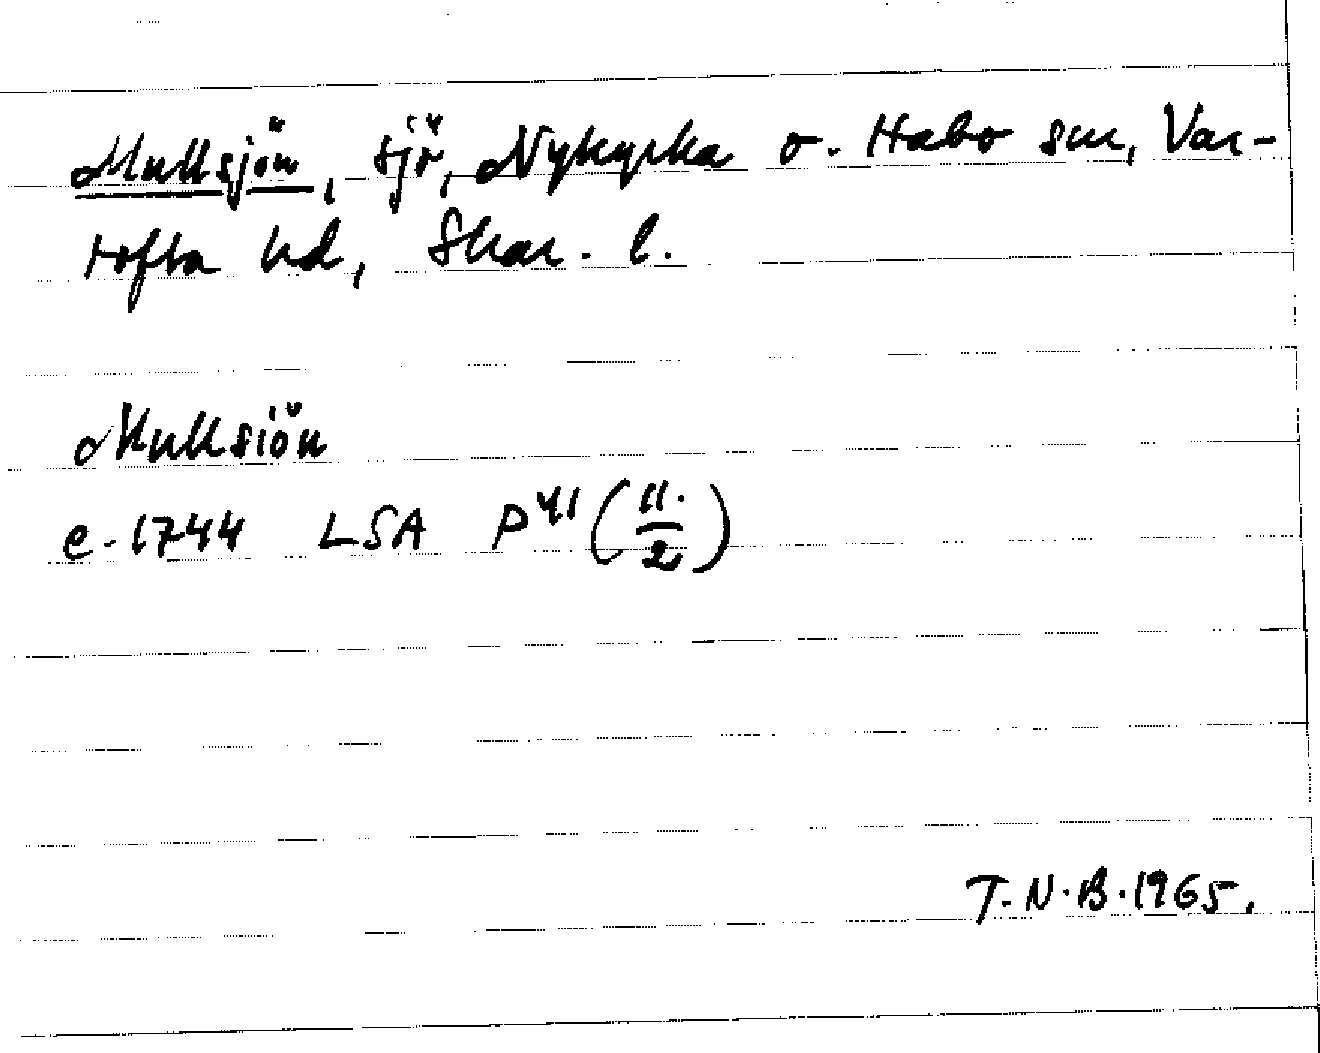 Mullsjön, sjö, Nykyrka o. Habo snr, Var-
tofta hd, Skar. l.
Mullsiön
e. 1744 LSA P 41 (11./2)
T.N.B. 1965.